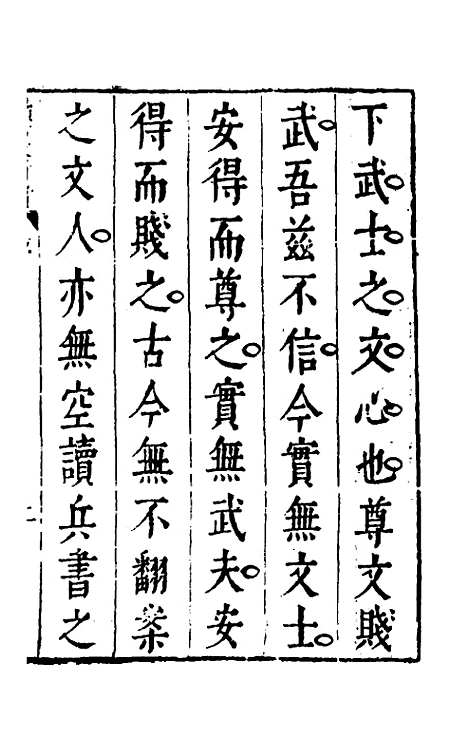 下武士之文心也尊文賤
武吾茲不信今實無文士
安得而尊之實無武夫安
得而賤之古今無不翻案
之文人亦無空讀兵書之